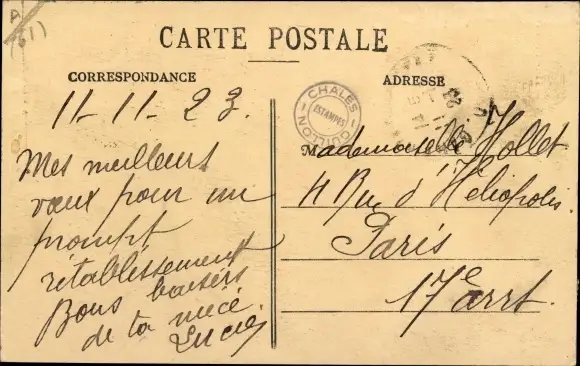 A
(61)
CARTE POSTALE
CORRESPONDANCE
ADRESSE
CHALES
ESTAMPES
GUILLON
11-11-23.
Mes meilleurs
vœux pour un
prompt
rétablissement
Bons baisers
de ta nièce.
Lucie
Mademoiselle Hollet
4 Rue d'Héliopolis.
Paris
17e arrt.